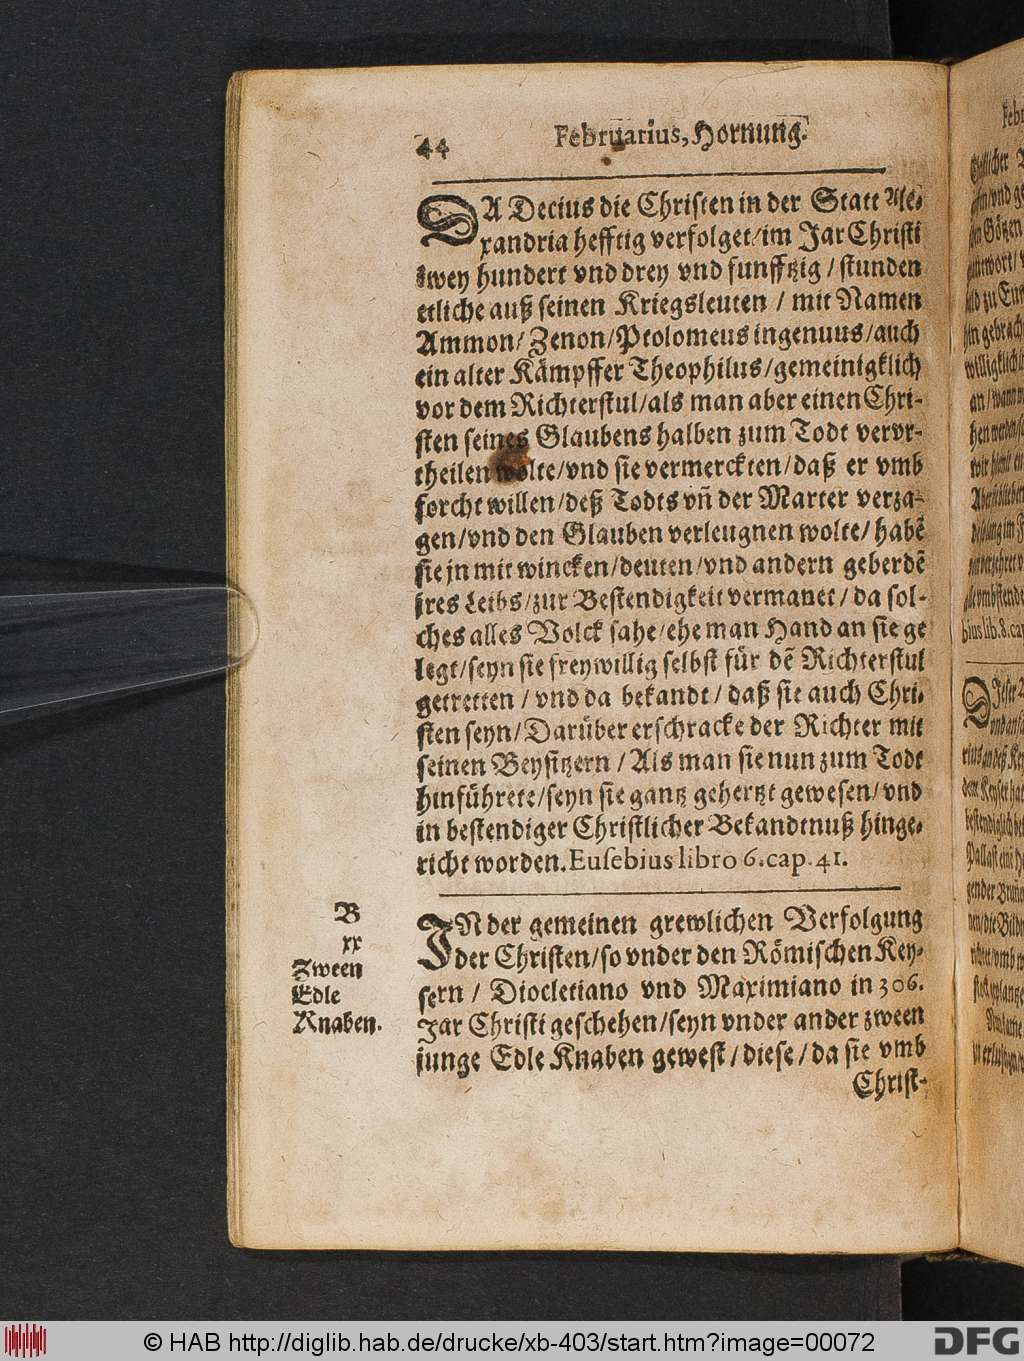 44 Februarius, Hornung.
DA Decius die Christen in der Statt Ale-
xandria hefftig verfolget/im Jar Christi
zwey hundert vnd drey vnd funfftzig / stunden
etliche auß seinen Kriegsleuten / mit Namen
Ammon/ Zenon/Ptolomeus ingenuus/auch
ein alter Kämpffer Theophilus/gemeinigklich
vor dem Richterstul/als man aber einen Chri-
sten seines Glaubens halben zum Todt vervr-
theilen wolte/vnd sie vermerckten/daß er vmb
forcht willen/deß Todts vn̄ der Marter verza-
gen/vnd den Glauben verleugnen wolte/ habē
sie jn mit wincken/deuten/vnd andern geberdē
jres Leibs/zur Bestendigkeit vermanet / da sol-
ches alles Volck sahe/ehe man Hand an sie ge
legt/seyn sie freywillig selbst für dē Richterstul
getretten / vnd da bekandt / daß sie auch Chri-
sten seyn/ Darüber erschracke der Richter mit
seinen Beysitzern / Als man sie nun zum Todt
hinführete/seyn sie gantz gehertzt gewesen/ vnd
in bestendiger Christlicher Bekandtnuß hinge-
richt worden. Eusebius libro 6. cap. 41.
B
xx
Zween
Edle
Knaben.
IN der gemeinen grewlichen Verfolgung
der Christen/so vnder den Römischen Key-
sern / Diocletiano vnd Maximiano in 306.
Jar Christi geschehen/seyn vnder ander zween
junge Edle Knaben gewest / diese / da sie vmb
Christ-
© HAB http://diglib.hab.de/drucke/xb-403/start.htm?image=00072
DFG